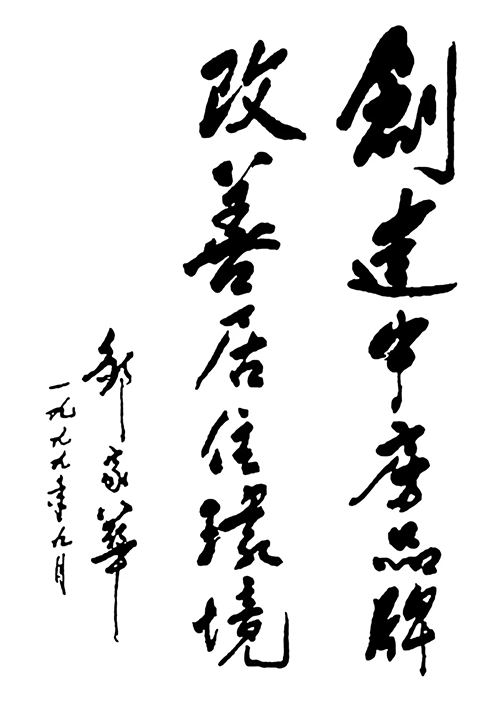 創建中房品牌
改善居住環境
鄒家華
一九九九年九月